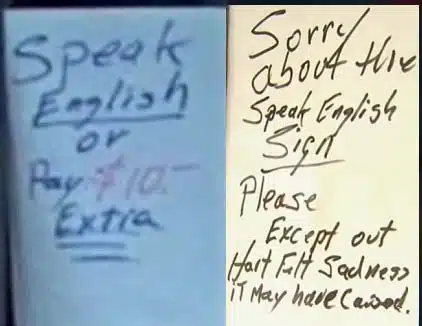 Speak
English
or
Pay $10.-
Extra
Sorry
about the
Speak English
Sign
Please
Except out
Hart Felt Sadness
iT May have Caused.